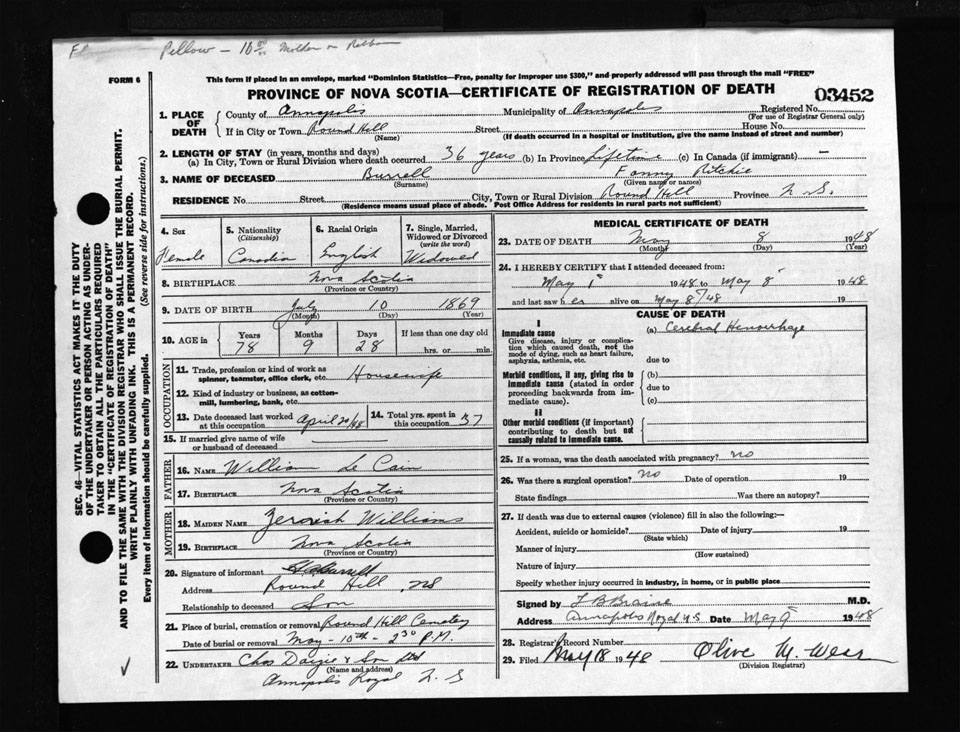 Pellow — 10
FORM 6
This form if placed in an envelope, marked "Dominion Statistics—Free, penalty for improper use $300," and properly addressed will pass through the mail "FREE"
PROVINCE OF NOVA SCOTIA—CERTIFICATE OF REGISTRATION OF DEATH
03452
1. PLACE OF DEATH
County of Annapolis Municipality of Annapolis Registered No.
(For use of Registrar General only)
If in City or Town Round Hill Street House No.
(Name) (If death occurred in a hospital or institution, give the name instead of street and number)
2. LENGTH OF STAY (in years, months and days)
(a) In City, Town or Rural Division where death occurred 36 years (b) In Province Lifetime (c) In Canada (if immigrant) —
3. NAME OF DECEASED Burrell Fanny Ritchie
(Surname) (Given name or names)
RESIDENCE No. Street City, Town or Rural Division Round Hill Province N.S.
(Residence means usual place of abode. Post Office Address for residents in rural parts not sufficient)
4. Sex
Female
5. Nationality
(Citizenship)
Canadian
6. Racial Origin
English
7. Single, Married, Widowed or Divorced
(write the word)
Widowed
8. BIRTHPLACE Nova Scotia
(Province or Country)
9. DATE OF BIRTH July 10 1869
(Month) (Day) (Year)
10. AGE in Years Months Days If less than one day old
78 9 28 hrs. or min.
OCCUPATION
11. Trade, profession or kind of work as
spinner, teamster, office clerk, etc. Housewife
12. Kind of industry or business, as cotton-
mill, lumbering, bank, etc.
13. Date deceased last worked
at this occupation April 20/48
14. Total yrs. spent in
this occupation 57
15. If married give name of wife
or husband of deceased
FATHER
16. NAME William Le Cain
17. BIRTHPLACE Nova Scotia
(Province or Country)
MOTHER
18. MAIDEN NAME Zeraiah Williams
19. BIRTHPLACE Nova Scotia
(Province or Country)
20. Signature of informant Burrell
Address Round Hill, NS
Relationship to deceased Son
21. Place of burial, cremation or removal Round Hill Cemetery
Date of burial or removal May - 10th - 2 30 P.M.
22. UNDERTAKER Chas Dargie & Son Ltd
(Name and address)
Annapolis Royal N. S
MEDICAL CERTIFICATE OF DEATH
23. DATE OF DEATH May 8 1948
(Month) (Day) (Year)
24. I HEREBY CERTIFY that I attended deceased from:
May 1st 1948 to May 8th 1948
and last saw her alive on May 8th/48 19
CAUSE OF DEATH
I
Immediate cause
Give disease, injury or complica-
tion which caused death, not the
mode of dying, such as heart failure,
asphyxia, asthenia, etc.
(a) Cerebral Hemorrhage
due to
Morbid conditions, if any, giving rise to
immediate cause (stated in order
proceeding backwards from im-
mediate cause).
(b)
due to
(c)
II
Other morbid conditions (if important)
contributing to death but not
causally related to immediate cause.
25. If a woman, was the death associated with pregnancy? no
26. Was there a surgical operation? no Date of operation 19
State findings Was there an autopsy?
27. If death was due to external causes (violence) fill in also the following:—
Accident, suicide or homicide? Date of injury 19
(State which)
Manner of injury
(How sustained)
Nature of injury
Specify whether injury occurred in industry, in home, or in public place
Signed by L B Braine M.D.
Address Annapolis Royal N.S Date May 9th 1948
28. Registrar's Record Number
29. Filed May 18 1948 Olive M. Wear
(Division Registrar)
SEC. 46—VITAL STATISTICS ACT MAKES IT THE DUTY
OF THE UNDERTAKER OR PERSON ACTING AS UNDER-
TAKER TO OBTAIN ALL THE PARTICULARS REQUIRED
IN THE "CERTIFICATE OF REGISTRATION OF DEATH"
AND TO FILE THE SAME WITH THE DIVISION REGISTRAR WHO SHALL ISSUE THE BURIAL PERMIT.
WRITE PLAINLY WITH UNFADING INK. THIS IS A PERMANENT RECORD.
Every item of information should be carefully supplied. (See reverse side for instructions.)